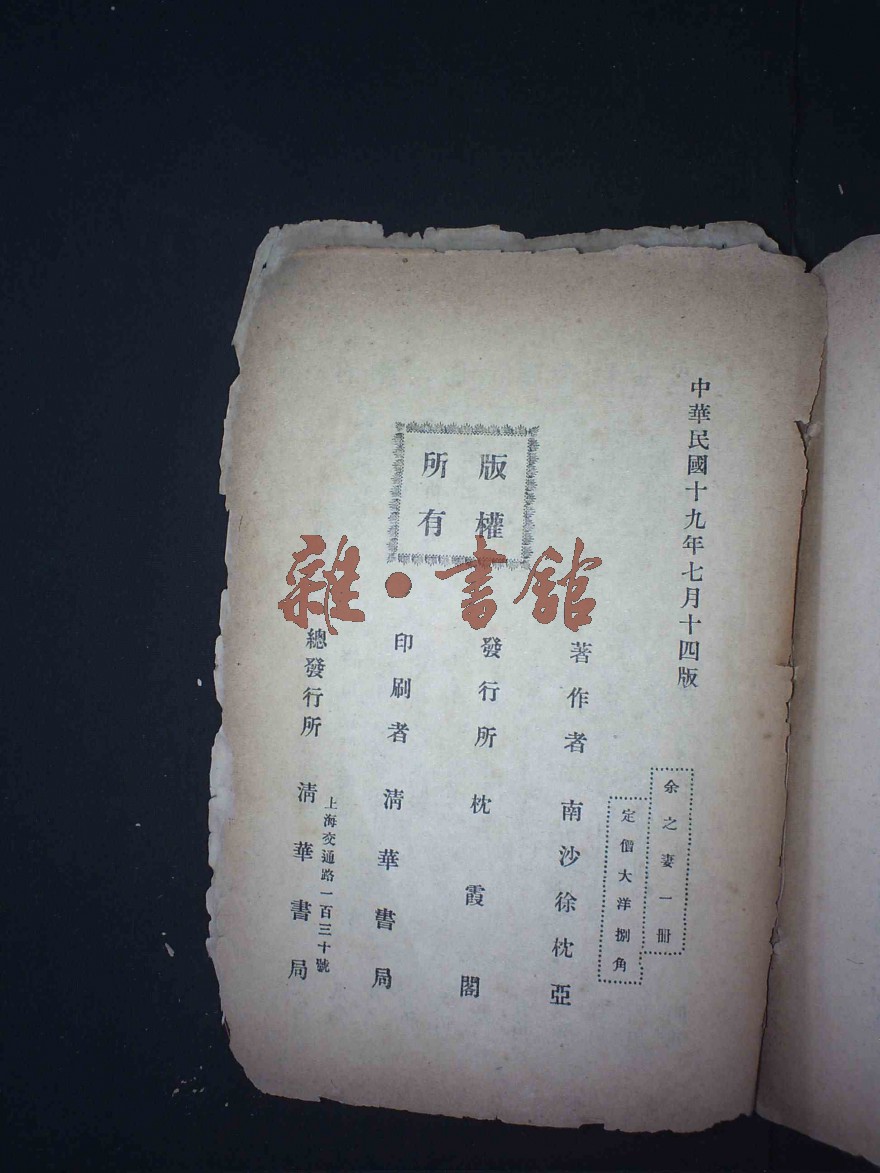 中華民國十九年七月十四版
余之妻一册
定價大洋捌角
著作者 南沙徐枕亞
發行所 枕霞閣
印刷者 淸華書局
上海交通路一百三十號
總發行所 淸華書局
版權
所有
雜·書館